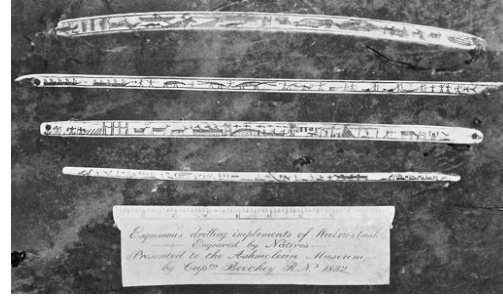 Esquimaux drilling implements of Walrus tusk
Engraved by Natives
Presented to the Ashmolean Museum,
by Captn Beechey R.N. 1832